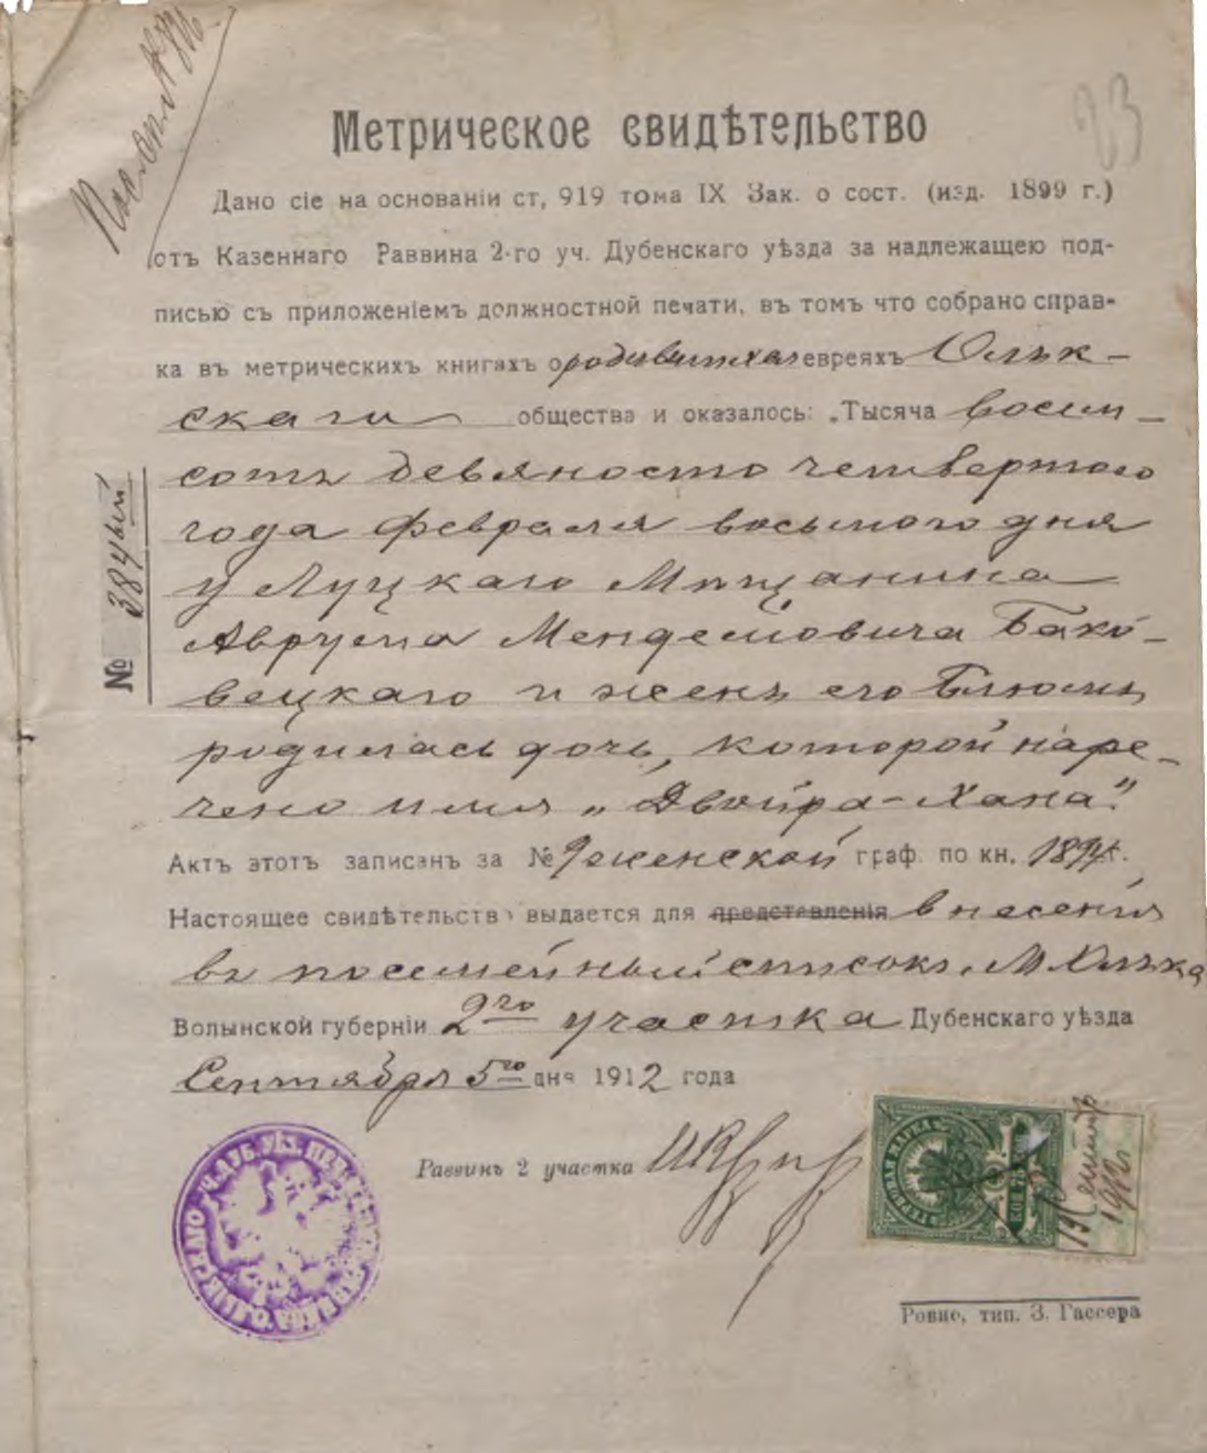 23
Метрическое свидѣтельство
Дано сіе на основаніи ст, 919 тома IX Зак. о сост. (изд. 1899 г.)
отъ Казеннаго Раввина 2-го уч. Дубенскаго уѣзда за надлежащею под-
письью съ приложеніемъ должностной печати, въ томъ что собрано справ-
ка въ метрическихъ книгахъ о родившихся евреяхъ Олык-
скаго общества и оказалось: „Тысяча восем-
сотъ девяносто четвертого
года февраля восьмого дня
у Луцкаго Мѣщанина
Аврума Менделіовича Бако-
вецкаго и женѣ его Блюмѣ
родилась дочь, которой наре-
чено имя „Двойра-Хана".
Актъ этотъ записанъ за № 9 женской граф. по кн. 1894 г.
Настоящее свидѣтельство выдается для представленія внесенія
въ посемейный списокъ. М. Олыка
Волынской губерніи 2го участка Дубенскаго уѣзда
Сентября 5го дня 1912 года
№ 384ый
Раввинъ 2 участка
ГЕРБОВАЯ МАРКА
75 КОП
13 Сентябр 1912
Ровно, тип. З. Гассера